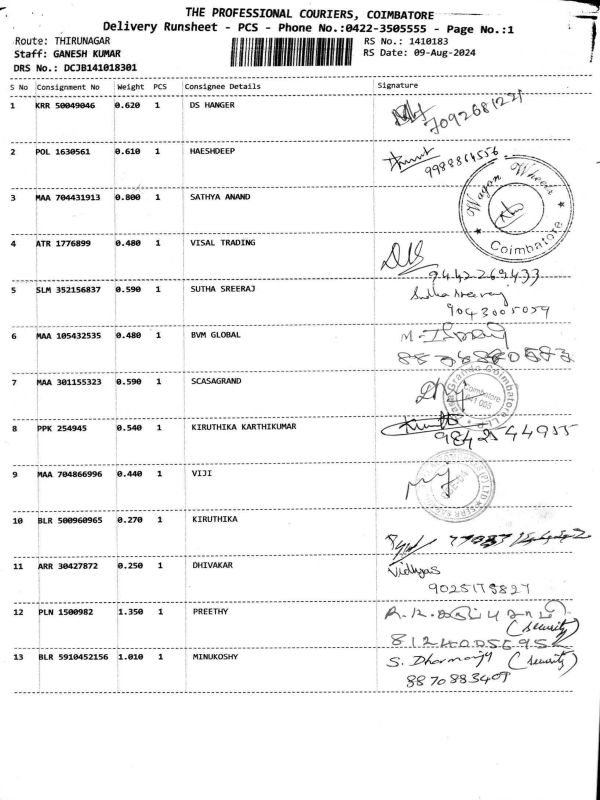 THE PROFESSIONAL COURIERS, COIMBATORE
Delivery Runsheet - PCS - Phone No.:0422-3505555 - Page No.:1
Route: THIRUNAGAR RS No.: 1410183
Staff: GANESH KUMAR RS Date: 09-Aug-2024
DRS No.: DCJB141018301
S No Consignment No Weight PCS Consignee Details Signature
1 KRR 50049046 0.620 1 DS HANGER
7092681221
2 POL 1630561 0.610 1 HAESHDEEP
9988864556
3 MAA 704431913 0.800 1 SATHYA ANAND Wagon Wheels Coimbatore
4 ATR 1776899 0.480 1 VISAL TRADING
9442269433
5 SLM 352156837 0.590 1 SUTHA SREERAJ Sutha Sreeraj
9043005059
6 MAA 105432535 0.480 1 BVM GLOBAL
7 MAA 301155323 0.590 1 SCASAGRAND Coimbatore
8 PPK 254945 0.540 1 KIRUTHIKA KARTHIKUMAR
9842544955
9 MAA 704866996 0.440 1 VIJI
10 BLR 500960965 0.270 1 KIRUTHIKA
11 ARR 30427872 0.250 1 DHIVAKAR Vidhyas
9025175827
12 PLN 1500982 1.350 1 PREETHY
(Security)
13 BLR 5910452156 1.010 1 MINUKOSHY S. (Security)
8870883409